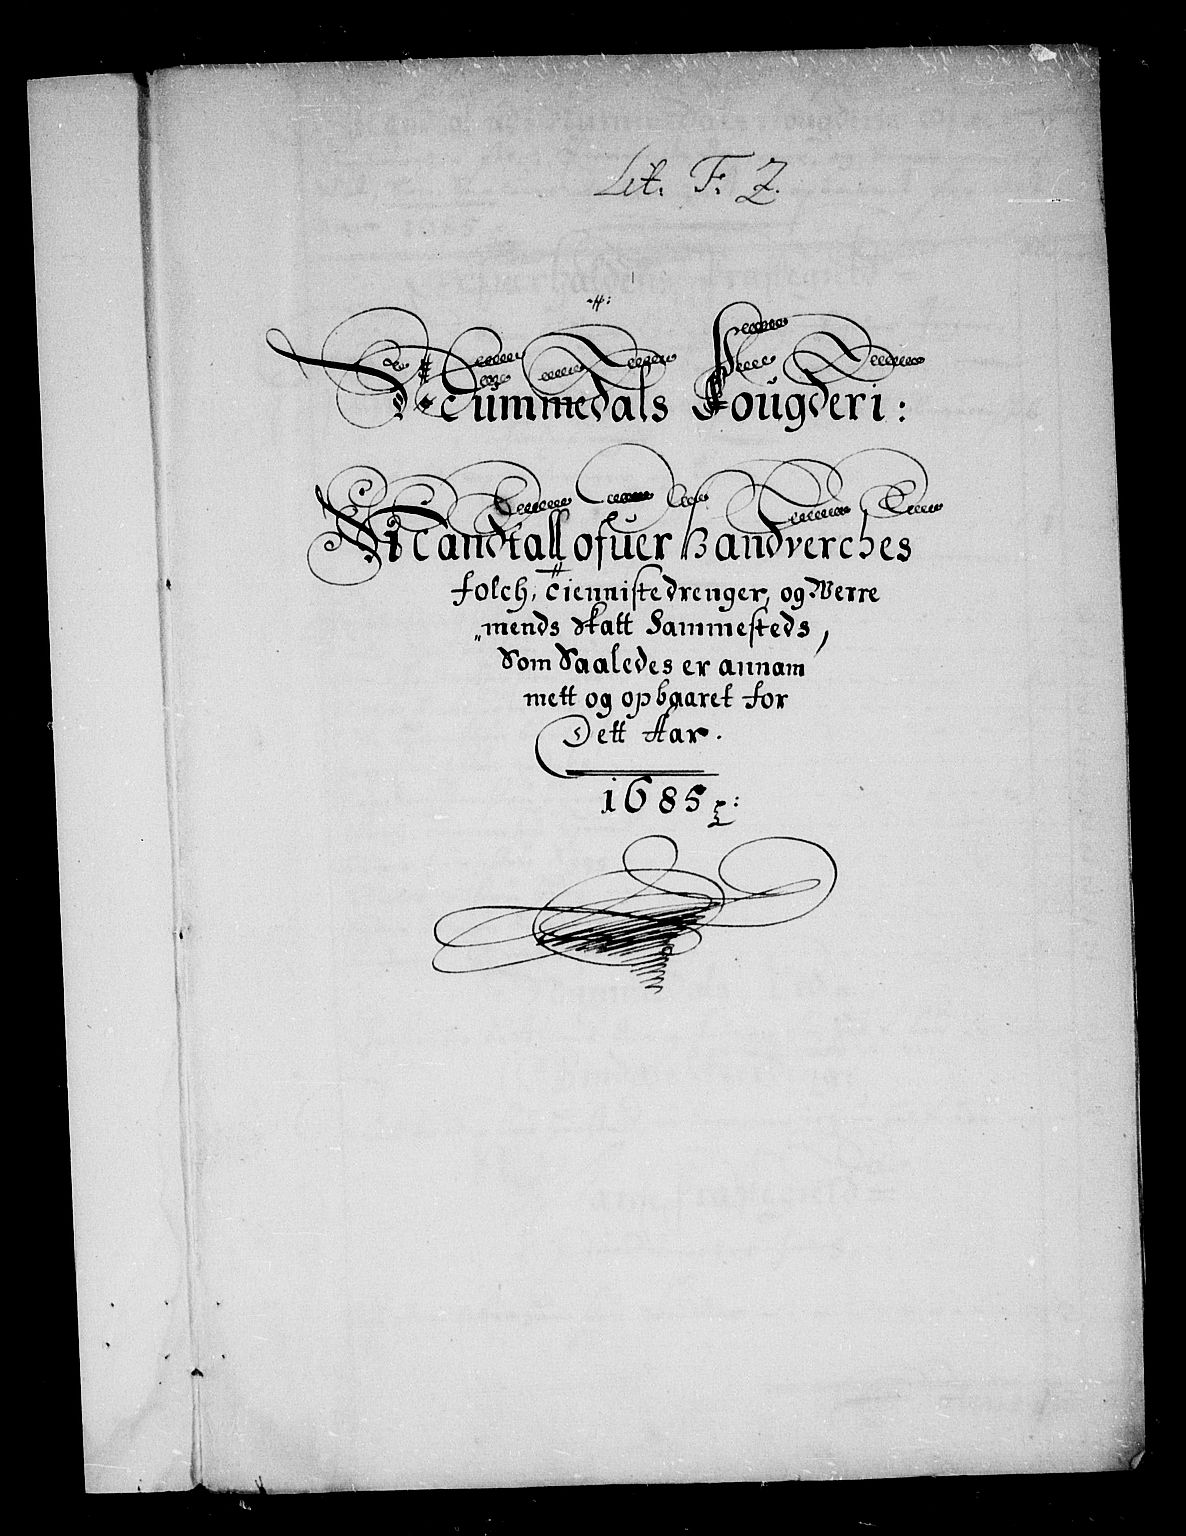 Lit. F. Z.
Nummedals Fougderi:
Mandtall ofuer Handverches
folch, tiennistedrenger, og Werre
„mends skatt Sammesteds,
Som Saaledes er annam
mett og opbaaret for
Dett Aar.
1685